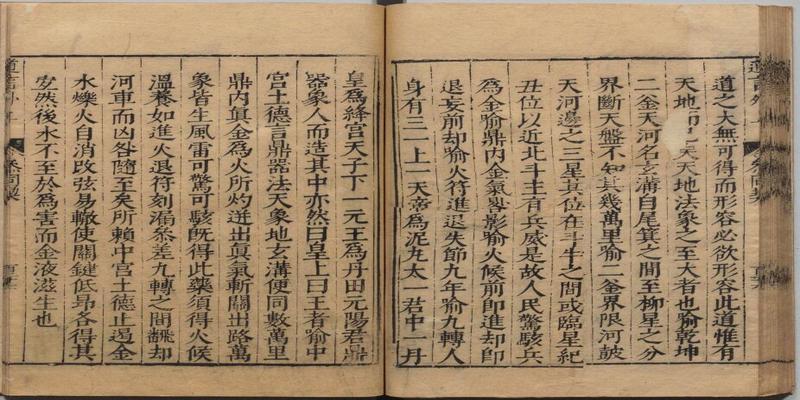 道之大無可得而形容必欲形容此道惟有
天地天天地法象之至大者也喻乾坤
二釜天河名玄溝自尾箕之間至柳星之分
界斷天盤不知其幾萬里喻二釜界限河鼓
天河邊之三星其位在斗牛之間或臨星紀
丑位以近北斗主有兵威是故人民驚駭兵
為金喻鼎內金氣晷影喻火候前即進却即
退妄前却喻火符進退失節九年喻九轉人
身有三一上一天帝為泥丸太一君中一丹
皇為絳宫天子下一元王為丹田元陽君鼎
器象人而造其中亦然曰皇上曰王者喻中
宫土德言鼎器法天象地玄溝便同數萬里
鼎內真金為火所灼迸出真氣斬關出路萬
象皆生風雷可驚可駭既得此藥須得火候
溫養如進火退符刻漏叅差九轉之間飜却
河車而凶咎隨至矣所賴中宫土德止遏金
水爍火自消改弦易轍使關鍵低昂各得其
安然後水不至於為害而金液滋生也
道言外